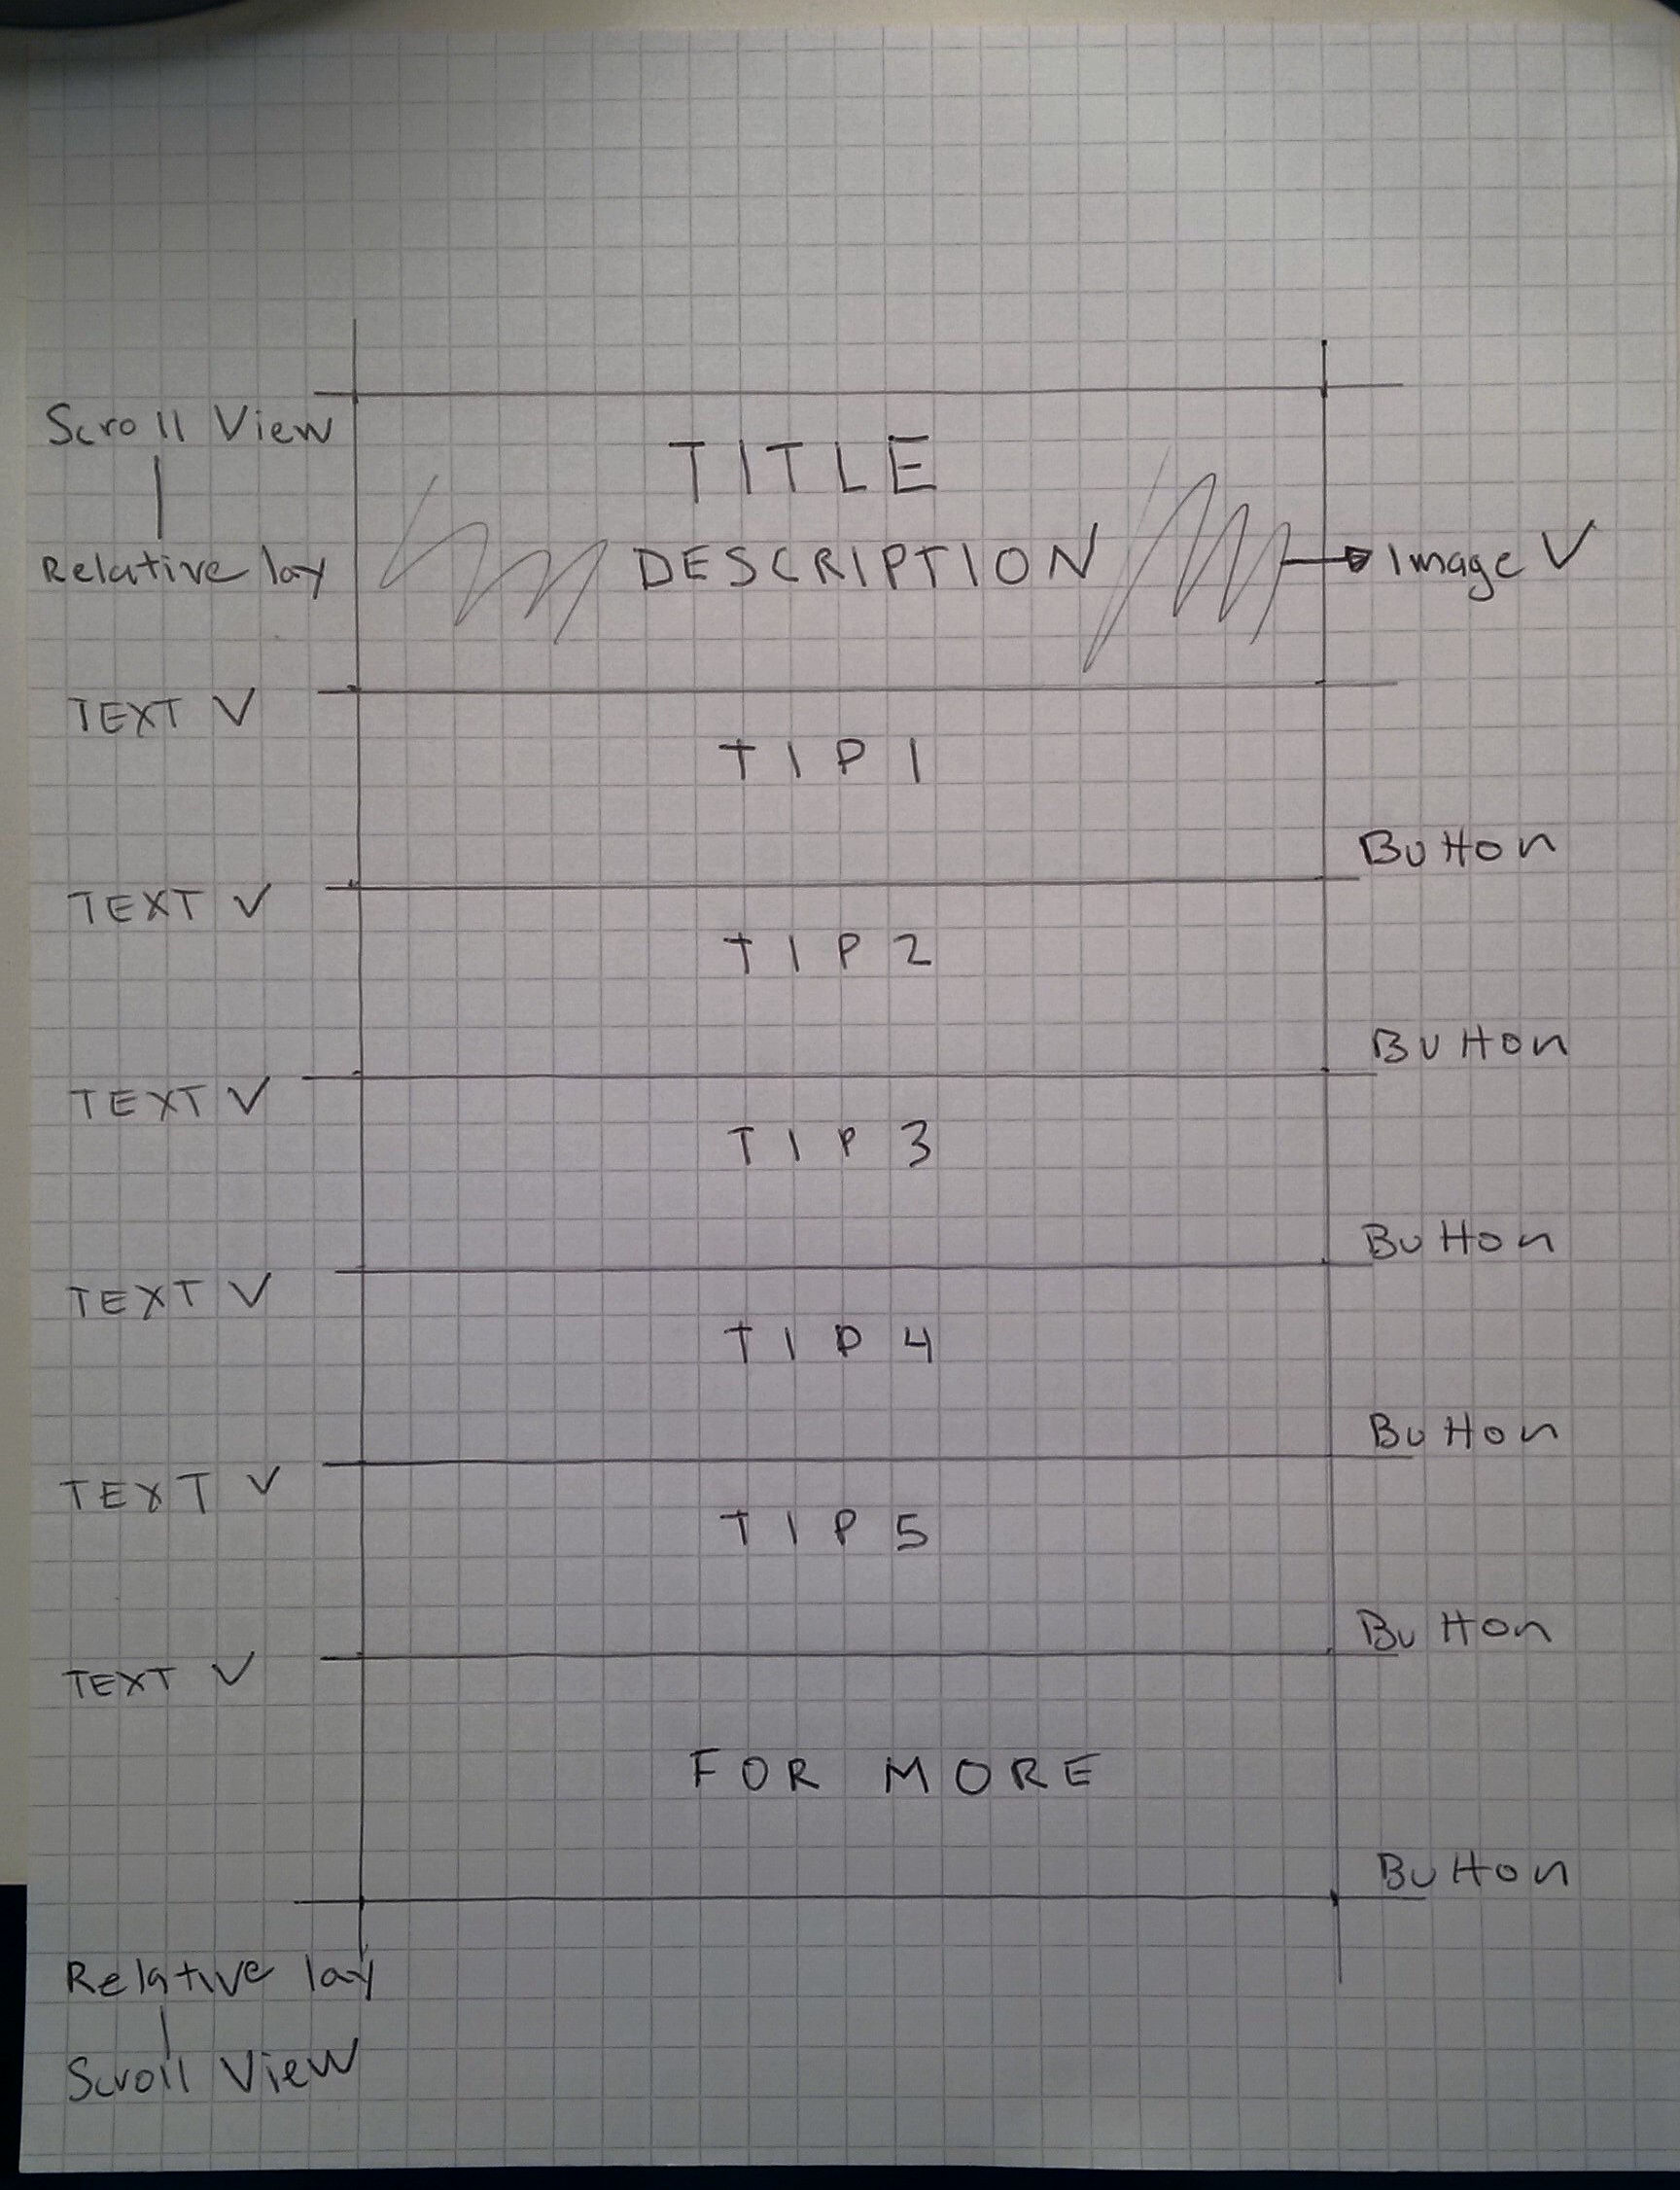 Scroll View
TITLE
Relative lay
DESCRIPTION
Image V
TEXT V
TIP1
Button
TEXT V
TIP2
Button
TEXT V
TIP3
Button
TEXT V
TIP4
Button
TEXT V
TIP5
Button
TEXT V
FOR MORE
Button
Relative lay
Scroll View